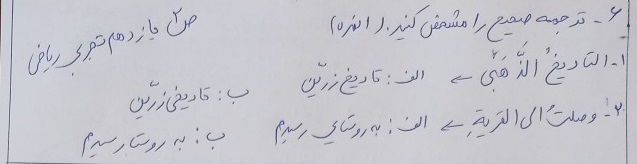 ۶- ترجمه صحیح را مشخص کنید. (۱نمره) ص۲ یازدهم تجربی ریاضی
۱- التاریخُ الذَّهَبّی ← الف: تاریخ زرّین ب: تاریخی زرّین
۲- وصلتُ الی القریةِ ← الف: به روستای رسیدم ب: به روستا رسیدم